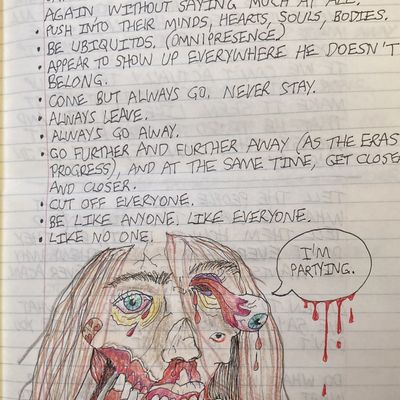 AGAIN, WITHOUT SAYING MUCH AT ALL.
• PUSH INTO THEIR MINDS, HEARTS, SOULS, BODIES.
• BE UBIQUITOS. (OMNIPRESENCE.)
• APPEAR TO SHOW UP EVERYWHERE HE DOESN'T
BELONG.
• COME BUT ALWAYS GO. NEVER STAY.
• ALWAYS LEAVE.
• ALWAYS GO AWAY.
• GO FURTHER AND FURTHER AWAY (AS THE ERAS
PROGRESS), AND AT THE SAME TIME, GET CLOSE
AND CLOSER.
• CUT OFF EVERYONE.
• BE LIKE ANYONE. LIKE EVERYONE.
• LIKE NO ONE.
I'M
PARTYING.